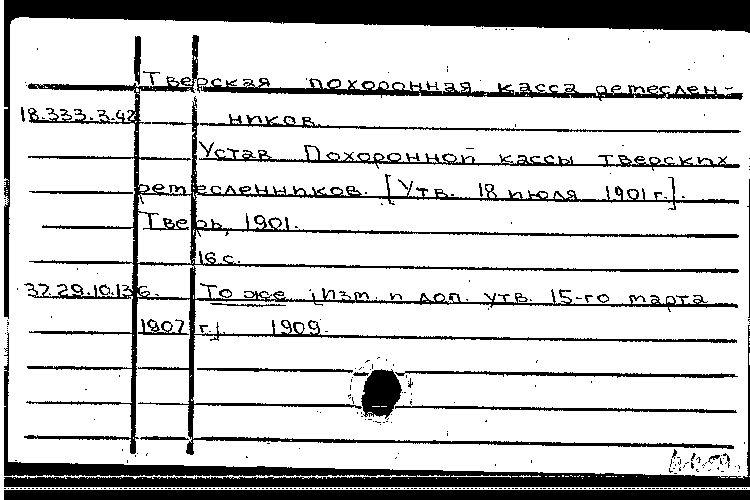 Тверская похоронная касса ремеслен-
18.333.3.42 ников
Устав Похоронной кассы тверских
ремесленников. [Утв. 18 июля 1901 г.].
Тверь, 1901.
16 с.
37.29.10.136. То же [Изм. и доп. утв. 15-го марта
1907 г.]. 1909.